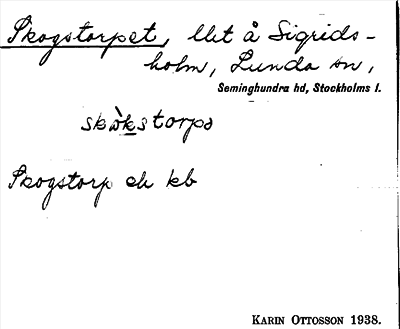 Skogstorpet, llet å Sigrids-
holm, Lunda sn,
Seminghundra hd, Stockholms l.
skò̱kstorpə
Skogstorp ek kb
KARIN OTTOSSON 1938.